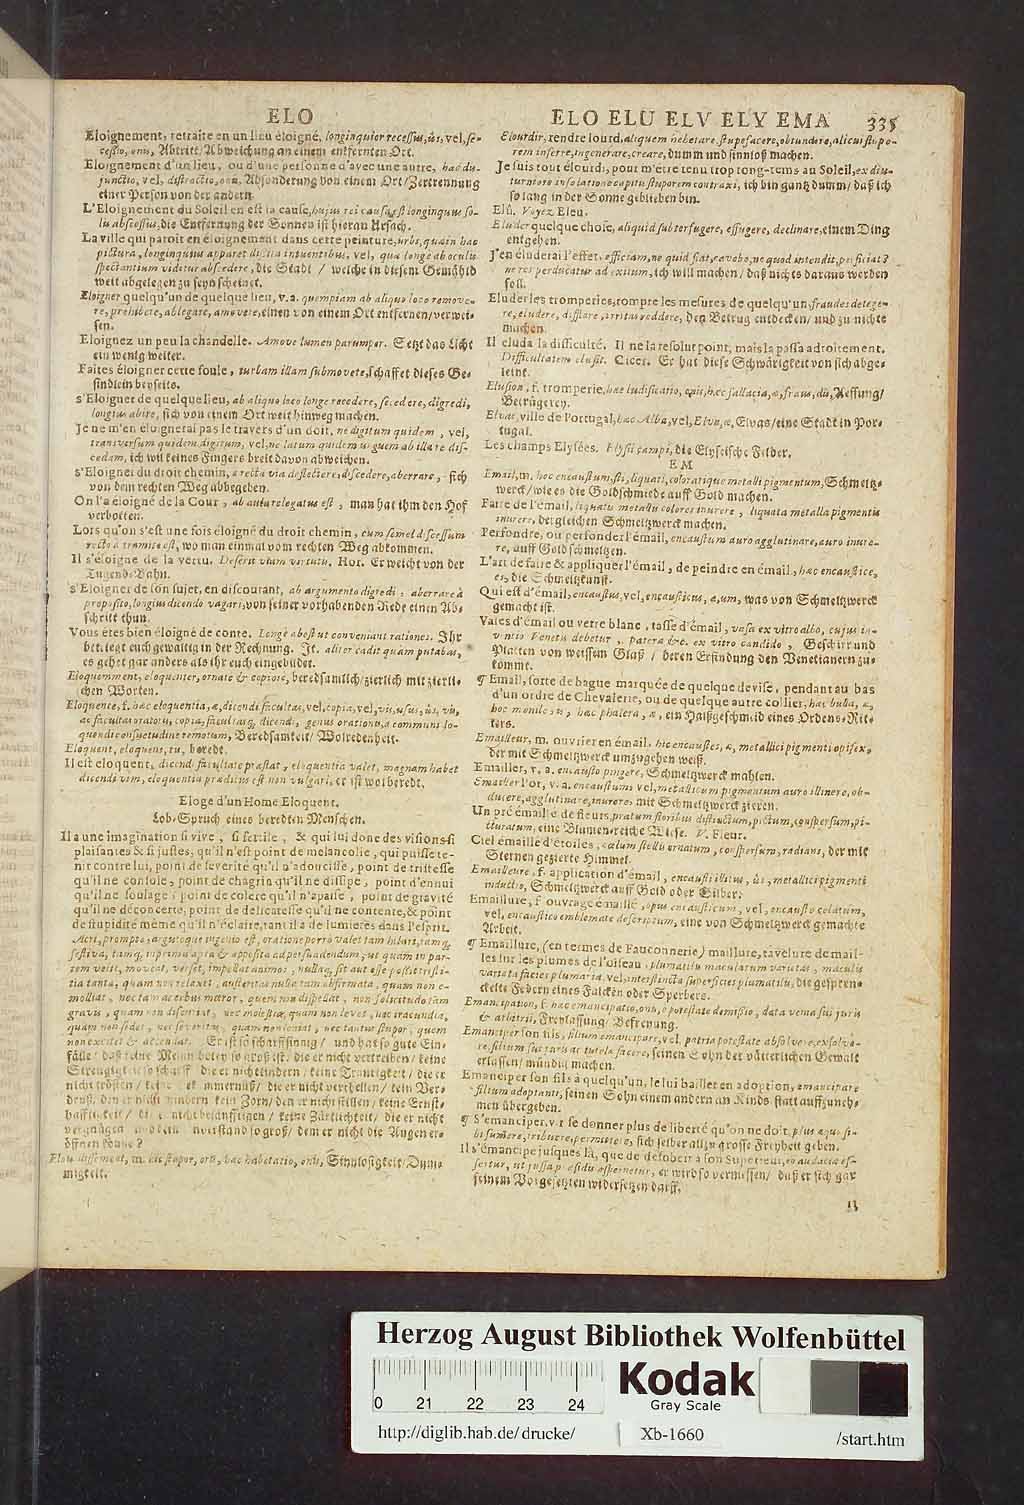 ELO
Eloignement, retraite en un lieu éloigné, longinquior recessus, ûs, vel, se-
cessio, onis, Abtritt/Abweichung an einem entfernten Ort.
Eloignement d'un lieu, ou d'une personne d'avec une autre, hac dis-
junctio, vel, distractio, onis, Absonderung von einem Ort/Zertrennung
einer Person von der andern.
L'Eloignement du Soleil en est la cause, hujus rei causa est longinquus so-
lis abscessus, die Entfernung der Sonnen ist hieran Ursach.
La ville qui paroit en éloignement dans cette peinture, urbs, quam hac
pictura, longinquius apparet dissita intuentibus, vel, qua longe ab oculis
spectantium videtur abscedere, die Stadt / welche in diesem Gemähld
weit abgelegen zu seyn scheinet.
Eloigner quelqu'un de quelque lieu, v. a. quempiam ab aliquo loco remove-
re, prohibere, ablegare, amovere, einen von einem Ort entfernen/verwei-
sen.
Eloignez un peu la chandelle. Amove lumen parumper. Setzt das Liecht
ein wenig weiter.
Faites éloigner cette foule, turbam illam submovete, schaffet dieses Ge-
sindlein beyseits.
s'Eloigner de quelque lieu, ab aliquo loco longe recedere, secedere, digredi,
longius abire, sich von einem Ort weit hinweg machen.
Je ne m'en éloignerai pas le travers d'un doit, ne digitum quidem, vel,
transversum quidem digitum, vel, ne latum quidem unguem ab illa re dis-
cedam, ich wil keines Fingers breit davon abweichen.
s'Eloigner du droit chemin, a recta via deflectere, discedere, aberrare, sich
von dem rechten Weg abbegeben.
On l'a éloigné de la Cour, ab aula relegatus est, man hat ihm den Hof
verbotten.
Lors qu'on s'est une fois éloigné du droit chemin, cum semel discessum
recto à tramite est, wo man einmal vom rechten Weg abkommen.
Il s'éloigne de la vertu. Deserit viam virtutis. Hor. Er weicht von der
Tugend-Bahn.
s'Eloigner de son sujet, en discourant, ab argumento digredi, aberrare à
proposito, longius dicendo vagari, von seiner vorhabenden Rede einen Ab-
schritt thun.
Vous êtes bien éloigné de conte. Longè abest ut conveniant rationes. Ihr
betriegt euch gewaltig in der Rechnung. It. aliter cadit quàm putabas,
es gehet gar anders als ihr euch eingebildet.
Eloquemment, eloquenter, ornate & copiose, beredsamlich/zierlich mit zierli-
chen Worten.
Eloquence, f. hac eloquentia, æ, dicendi facultas, vel, copia, vel, vis, usus, ûs, vis,
ac facultas oratoris, copia, facultasq́; dicendi, genus orationis, a communi lo-
quendi consuetudine remotum, Beredsamkeit/ Wolredenheit.
Eloquent, eloquens, tis, beredt.
Il est eloquent, dicendi facultate præstat, eloquentia valet, magnam habet
dicendi vim, eloquentia præditus est non vulgari, er ist wol beredt.
Eloge d'un Home Eloquent.
Lob-Spruch eines beredten Menschen.
Il a une imagination si vive, si fertile, & qui lui donc des visions si
plaisantes & si justes, qu'il n'est point de melancolie, qui puisse te-
nir contre lui, point de severité qu'il n'adoucisse, point de tristesse
qu'il ne console, point de chagrin qu'il ne dissipe, point d'ennui
qu'il ne soulage, point de colere qu'il n'apaise, point de gravité
qu'il ne déconcerte, point de délicatesse qu'il ne contente, & point
de stupidité même qu'il n'éclaire, tant il a de lumieres dans l'esprit.
Acri, prompto, argutoque ingenio est, oratione porro valet tam hilari, tamq́;
festiva, tamq́; inprimis apta & apposita ad persuadendum, ut quam in par-
tem velit, moveat, verset, impellat animos, nullaq́; sit aut esse possit tristi-
tia tanta, quam non relaxet, austeritas nulla tam obfirmata, quam non e-
molliat, nec tam acerbus mæror, quem non dispellat, non solicitudo tam
gravis, quam non discutiat, nec molestia, quam non levet, hac iracundia,
quam non sedet, nec severitas, quam non leniat, nec tantus stupor, quem
non excitet & accendat. Er ist so scharffsinnig/ und hat so gute Ein-
fälle/ daß keine Melancholey so groß ist, die er nicht vertreiben/ keine
Strengigkeit so scharff, die er nicht lindern/ keine Traurigkeit/ die er
nicht trösten/ keine Bekümmernuß/ die er nicht vertheilen/ kein Ver-
druß, den er nicht mindern kein Zorn/ den er nicht stillen/ keine Ernst-
hafftigkeit/ die er nicht besänfftigen/ keine Zärtlichkeit/ die er nicht
vergnügen und kein Unverstand so groß/ dem er nicht die Augen er-
öffnen könne?
Elourdissement, m. hic stupor, oris, hac hebetatio, onis, Sinnlosigkeit/Dum-
migkeit.
ELO ELU ELV ELY EMA 335
Elourdir, rendre lourd, aliquem hebetare, stupefacere, obtundere, alicui stupo-
rem inferre, ingenerare, creare, dumm und sinnloß machen.
Je suis tout élourdi, pour m'être tenu trop long-tems au Soleil, ex diu-
turniore insolatione capitis stuporem contraxi, ich bin gantz dumm/ daß ich
so lang in der Sonne geblieben bin.
Elû. Voyez Eleu.
Eluder quelque chose, aliquid subterfugere, effugere, declinare, einem Ding
entgehen.
J'en éluderai l'effet. efficiam, ne quid fiat, cavebo, ne quod intendit, perficiat?
ne res perducatur ad exitum, ich will machen/ daß nichts daraus werden
soll.
Eluder les tromperies, rompre les mesures de quelqu'un, fraudes detege-
re, eludere, difflare, irritas reddere, den Betrug entdecken/ und zu nichte
machen.
Il eluda la difficulté. Il ne la resolut point, mais la passa adroitement.
Difficultatem elusit. Cicer. Er hat diese Schwärigkeit von sich abge-
leint.
Elusion, f. tromperie, hac ludificatio, onis, hæc fallacia, æ, fraus, dis, Aeffung/
Betrügerey.
Elvas, ville de Portugal, hac Alba, vel, Elva, æ, Elvas/ eine Stadt in Por-
tugal.
Les champs Elysées. Elysii campi, die Elyseische Felder.
EM
Email, m. hoc encaustum, sti, liquati, coloratique metalli pigmentum, Schmeltz-
werck/ wie es die Goldschmiede auff Gold machen.
Faire de l'émail, liquatis metallis colores inurere, liquata metalla pigmentis
inurere, dergleichen Schmeltzwerck machen.
Perfondre, ou perfonder l'émail, encaustum auro agglutinare, auro inure-
re, auff Gold schmeltzen.
L'art de faire & appliquer l'émail, de peindre en émail, hac encaustice,
es, die Schmeltzkunst.
Qui est d'émail, encaustus, vel, encausticus, a, um, was von Schmeltzwerck
gemacht ist.
Vases d'émail ou verre blanc, tasse d'émail, vasa ex vitro albo, cujus in-
ventio Venetis debetur, patera &c. ex vitro candido, Geschirr und
Platten von weissem Glaß/ deren Erfindung den Venetianern zu-
kommt.
¶ Email, sorte de bague marquée de quelque devise, pendant au bas
d'un ordre de Chevalerie, ou de quelque autre collier, hac bulla, æ,
hoc monile, is, hac phalera, æ, ein Halßgeschmeid eines Ordens-Rit-
ters.
Emailleur, m. ouvrier en émail, hic encaustes, æ, metallici pigmenti opifex,
der mit Schmeltzwerck umzugehen weiß.
Emailler, v. a. encausto pingere, Schmeltzwerck mahlen.
Emailler l'or, v. a. encaustum, vel, metallicum pigmentum auro illinere, ob-
ducere, agglutinare, inurere, mit Schmeltzwerck zieren.
Un pré émaillé de fleurs, pratum floribus distinctum, pictum, conspersum, pi-
cturatum, eine Blumen-reiche Wiese. V. Fleur.
Ciel émaillé d'étoiles, cælum stellis ornatum, conspersum, radians, der mit
Sternen gezierte Himmel.
Emailleure, f. application d'émail, encausti illitus, ûs, metallici pigmenti
inductio, Schmeltzwerck auff Gold oder Silber.
Emaillure, f. ouvrage émaillé, opus encausticum, vel, encausto celatum,
vel, encaustico emblemate descriptum, eine von Schmeltzwerck gemachte
Arbeit.
¶ Emaillure, (en termes de Fauconnerie) maillure, tavelure de mail-
les sur les plumes de l'oiseau, plumatilis macularum varietas, maculis
variata facies plumaria, vel, interstincta superficies plumatilis, die gespren-
ckelte Federn eines Falcken oder Sperbers.
Emancipation, f. hac emancipatio, onis, e potestate demissio, data venia sui juris
& arbitrii, Freylassung/ Befreyung.
Emanciper son fils, filium emancipare, vel, patria potestate absolvere, exsolve-
re, filium sui juris ac tutela facere, seinen Sohn der väterlichen Gewalt
erlassen/ mündig machen.
Emanciper son fils à quelqu'un, le lui bailler en adoption, emancipare
filium adoptanti, seinen Sohn einem andern an Kinds statt auffzuneh-
men übergeben.
¶ S'emanciper, v. r. se donner plus de liberté qu'on ne doit, plus æquo si-
bi sumere, tribuere, permittere, sich selber allzu grosse Freyheit geben.
Il s'émancipe jusques là, que de desobeïr à son Superieur, eo audacia ef-
fertur, ut jussa præsidis aspernetur, er wird so vermessen/ daß er sich gar
seinem Vorgesetzten widersetzen darff.
Herzog August Bibliothek Wolfenbüttel
0 21 22 23 24
Kodak
Gray Scale
http://diglib.hab.de/drucke/ Xb-1660 /start.htm